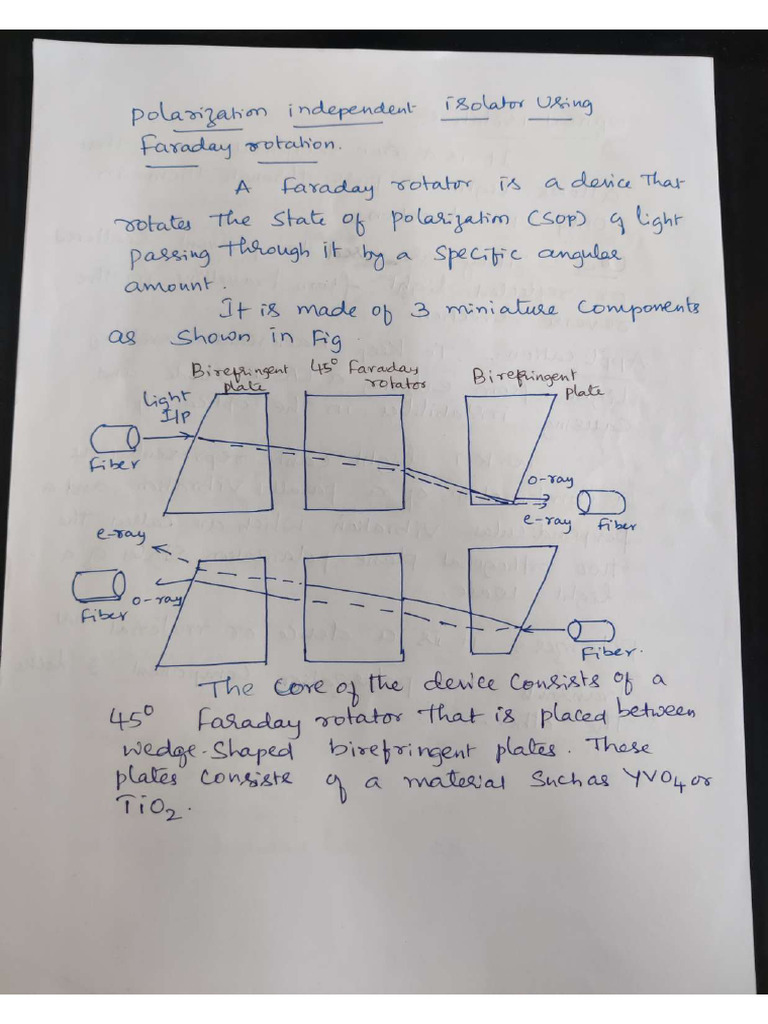 Polarization independent isolator Using
Faraday rotation.
A Faraday rotator is a device That
rotates The State of Polarization (SOP) of light
passing Through it by a specific angular
amount
It is made of 3 miniature Components
as Shown in Fig
Birefringent plate
45° Faraday rotator
Birefringent plate
Light I/P
Fiber
o-ray
e-ray
Fiber
e-ray
Fiber
o-ray
Fiber.
The Core of the device Consists of a
45° Faraday rotator That is placed between
wedge-Shaped birefringent plates. These
plates Consists of a material Such as YVO4 or
TiO2.